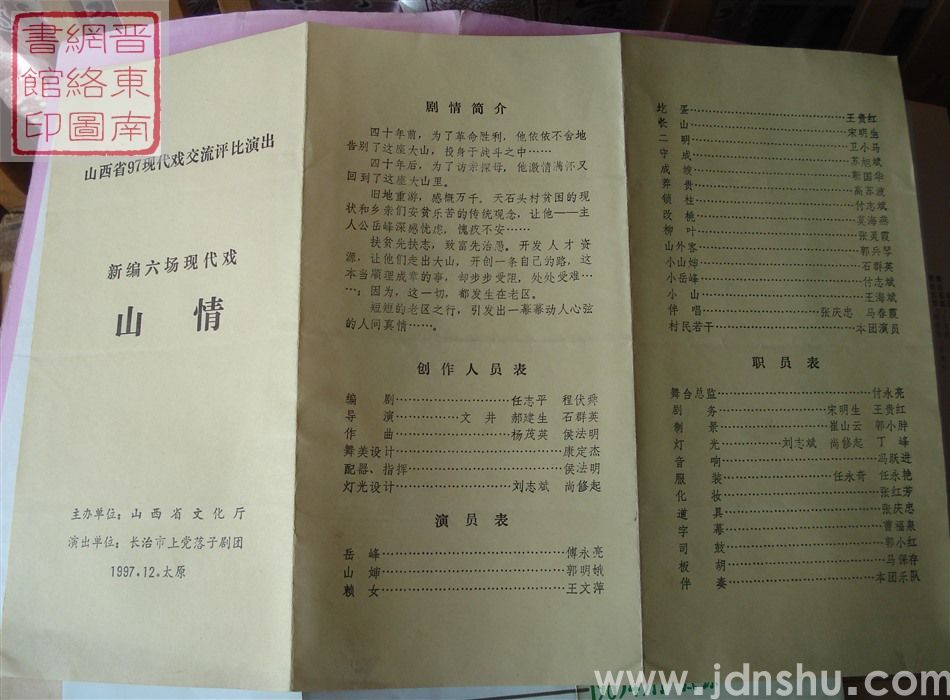 晋东南
網絡圖
書館印
山西省97现代戏交流评比演出
新编六场现代戏
山情
主办单位：山西省文化厅
演出单位：长治市上党落子剧团
1997.12.太原
剧情简介
四十年前，为了革命胜利，他依依不舍地
告别了这座大山，投身于战斗之中……
四十年后，为了访亲探母，他激情满怀又
回到了这座大山里。
旧地重游，感慨万千。天石头村贫困的现
状和乡亲们安贫乐苦的传统观念，让他——主
人公岳峰深感忧虑，愧疚不安……
扶贫先扶志，致富先治愚。开发人才资
源，让他们走出大山，开创一条自己的路，这
本当顺理成章的事，却步步受阻，处处受难…
…；因为，这一切，都发生在老区。
短短的老区之行，引发出一幕幕动人心弦
的人间真情……。
创作人员表
编剧……任志平 程伏舜
导演……文井 郝建生 石群英
作曲……杨茂英 侯法明
舞美设计……康定杰
配器、指挥……侯法明
灯光设计……刘志斌 尚修起
演员表
岳峰……傅永亮
山婶……郭明娥
赖女……王文萍
圪蛋……王贵红
长山……宋明生
二明……卫小马
守成……苏旭斌
成娃……靳国华
葬贵……高苏波
锁柱……付志斌
改桃……莫海燕
柳叶……张灵霞
山外客……郭兵琴
小山婶……石群英
小岳峰……付志斌
小山……王海斌
伴唱……张庆忠 马春霞
村民若干……本团演员
职员表
舞台总监……付永亮
剧务……宋明生 王贵红
制景……崔山云 郭小胖
灯光……刘志斌 尚修起 丁峰
音响……冯跃进
服装……任永奇 任永艳
化妆……张红芳
道具……张庆忠
字幕……曹福泉
司鼓……郭小红
板胡……马保存
伴奏……本团乐队
www.jdnshu.com